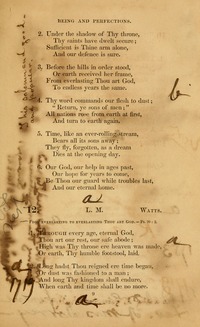 BEING AND PERFECTIONS.
2. Under the shadow of Thy throne,
Thy saints have dwelt secure;
Sufficient is Thine arm alone,
And our defence is sure.
3. Before the hills in order stood,
Or earth received her frame,
From everlasting Thou art God,
To endless years the same.
4. Thy word commands our flesh to dust;
"Return, ye sons of men;"
All nations rose from earth at first,
And turn to earth again.
5. Time, like an ever-rolling stream,
Bears all its sons away;
They fly, forgotten, as a dream
Dies at the opening day.
6. Our God, our help in ages past,
Our hope for years to come,
Be Thou our guard while troubles last,
And our eternal home.
12. L. M. WATTS.
THROUGH every age, eternal God,
Thou art our rest, our safe abode;
High was Thy throne ere heaven was made,
Or earth, Thy humble footstool, laid.
Long hadst Thou reigned ere time began,
Or dust was fashioned to a man;
And long Thy kingdom shall endure,
When earth and time shall be no more.